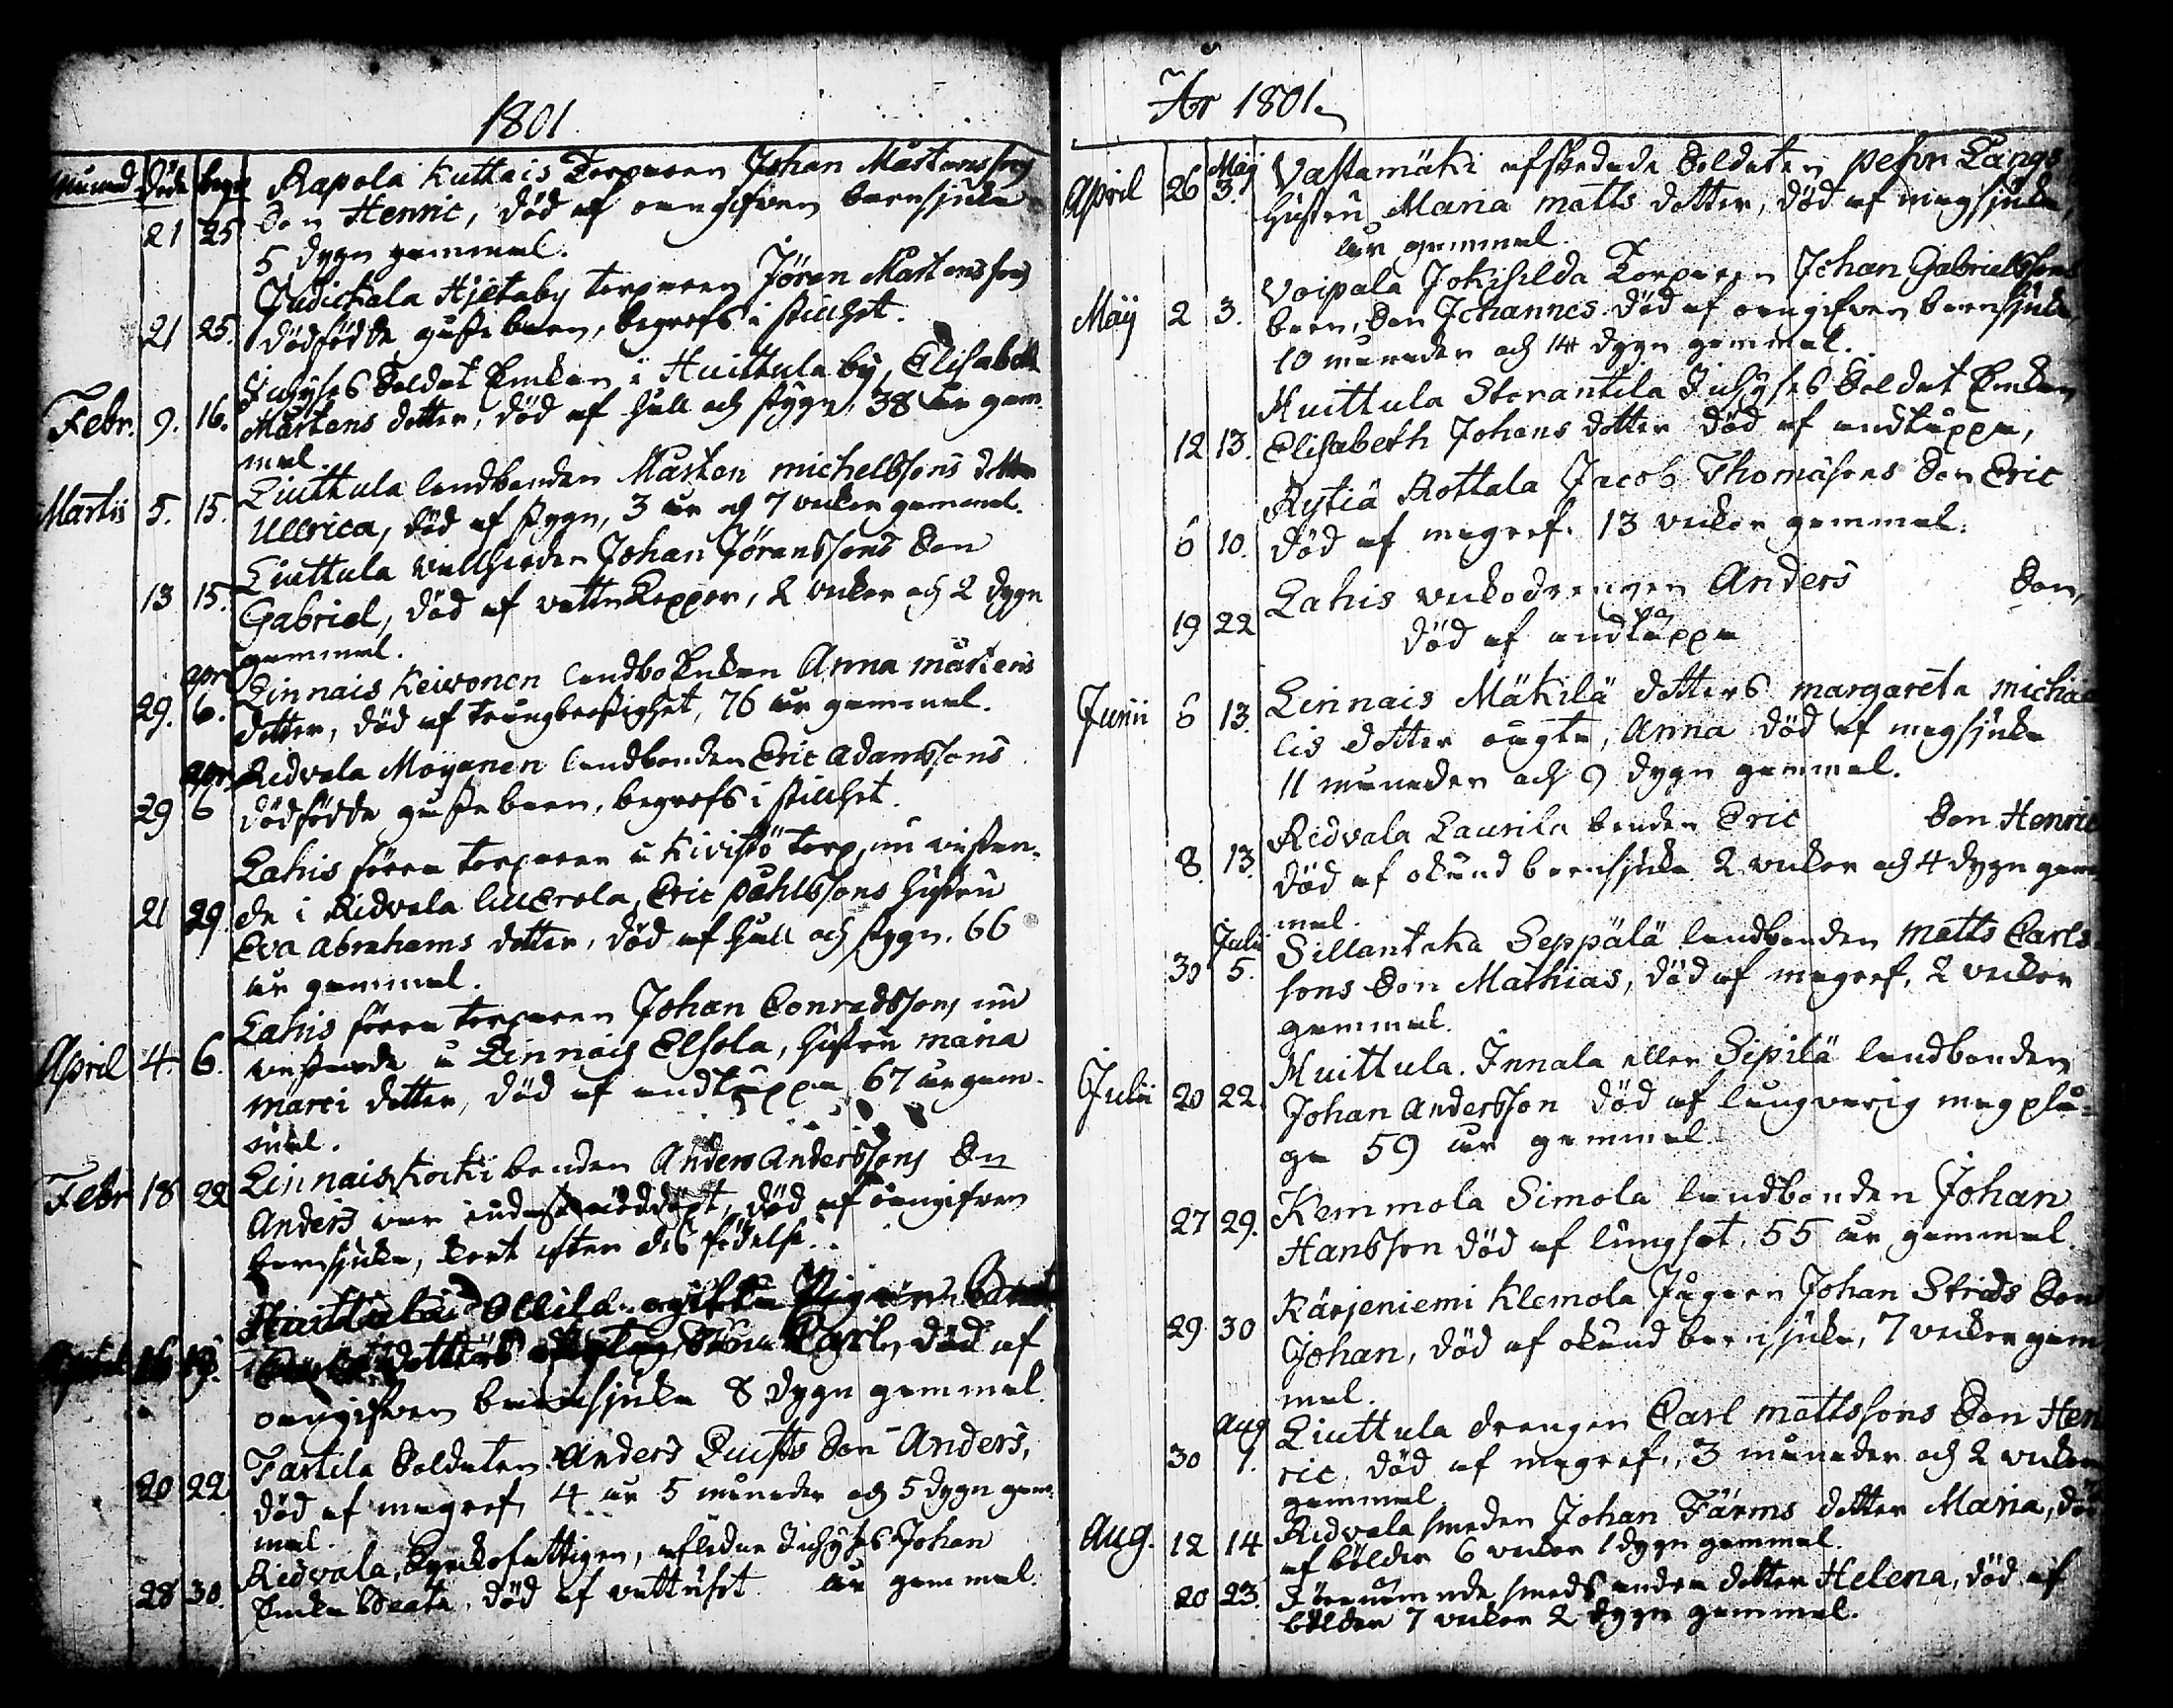 1801
månad Döde begr. Rapola Kuttais Torparen Johan Mårtenssons
21 25 Son Henric, död af oangifven barnsjuka
5 dygn gammal.
Judickala Hjetaby torparen Jören Mårtenssons
21 25. dödfödde gosse barn, begrofs i stillhet.
Inhyses Soldat Enkan i Huittula by, Elisabeth
Febr. 9. 16. Mårtens dotter, död af håll och stygn, 38 år gam
mal.
Liuttula landbonden Mårten michelssons dotter
Martii 5. 15. Ullrica, död af stygn, 3 år och 7 veckor gammal.
Liuttula vallherden Johan Jöranssons Son
13 15. Gabriel, död af vattukoppor, 2 veckor och 2 dygn
gammal.
apr Linnais Keivonen landbo Enkan Anna mårtens
29. 6. dotter, död af trångbröstighet, 76 år gammal.
apr. Ridvala Moyanen landbonden Eric adamssons
29 6 dödfödde gosse barn, begrofs i stillhet.
Lahis förra torparen å Kivistö torp, nu vistan-
21 29. de i Ridvala , Eric påhlssons hustru
Eva abrahams dotter, död af håll och stygn, 66
år gammal.
Lahis förra torparen Johan Conradssons nu
April 4. 6. vistande å Linnais Elsola, hustru maria
marci dotter, död af andtäppa 67 år gam-
mal.
Linnais Kocki bonden Anders Anderssons Son
Febr 18 22 Anders var nöddöpt, död af oangifven
barnsjuka, kort efter des födelse.
Huittula ogifta Pigan
April 16 19. dotters oägta Son Carl, död af
oangifven barnsjuka 8 dygn gammal.
Fartila Soldaten Anders Quists Son Anders,
20 22 död af magref, 4 år 5 månader och 5 dygn gam-
mal.
Ridvala, Kyrkofattigen, afledne Inhyses Johan
28 30. Enka Beata, död af vattusot år gammal.
År 1801.
Maj Vallamäki afskedade Soldaten pehr Långs
April 26 3. hustru Maria matts dotter, död af magsjuka,
år gammal.
Voipala Jokisilda Torparen Johan Gabrielssons
Maij 2 3. barn, Son Johannes död af oangifven barnsjuka,
10 månader och 14 dygn gammal.
Huittula Storantila Inhyses Soldat Enkan
12 13. Elisabeth Johans dotter död af andtäppa,
Rytiä Rottala Jacob Thomasons Son Eric
6 10. död af magref. 13 veckor gammal.
Lahis veckodrengen Anders Son,
19 22 död af andtäppa
Linnais Mäkilä dotters margareta michae
Junii 6 13. lis dotter oägta, Anna död af magsjuka
11 månader och 9 dygn gammal.
Ridvala Laurila bonden Eric Son Henric
8. 13. död af okänd barnsjuka 2 veckor och 4 dygn gam
mal.
Julii Sillantaka Seppälä landbonden matts Carls
30 5. sons Son Mathias, död af magref, 2 veckor
gammal.
Huittula. Innala eller Sipilä landbonden
Julii 20 22. Johan Andersson död af långvarig magplå-
ga 59 år gammal.
Kemmola Simola landbonden Johan
27 29. Hansson död af lungsot, 55 år gammal.
Kärjeniemi Klemola Jägaren Johan Strids Son
29 30 Johan, död af okänd barnsjuka, 7 veckor gam
mal.
Aug Liuttula drengen Carl mattssons Son Hen
30 1. ric, död af magref, 3 månader och 2 veckor
gammal.
Ridvala smeden Johan Färms dotter Maria, död
Aug. 12 14 af bölder 6 veckor 1 dygn gammal.
20 23. Förenämnde smeds andra dotter Helena, död af
bölder 7 veckor 2 dygn gammal.